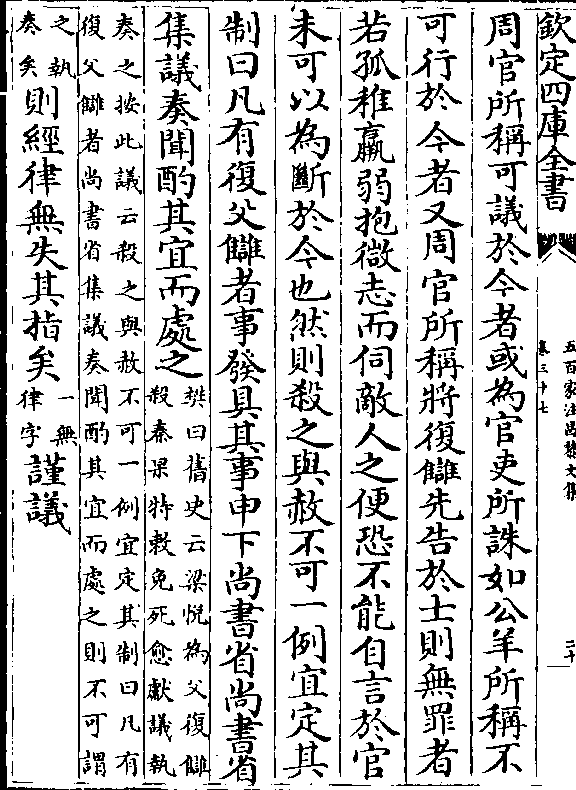 欽定四庫全書
五百家注昌黎文集
卷三十七
二十
周官所稱可議於今者或為官吏所誅如公羊所稱不
可行於今者又周官所稱將復讎先告於士則無罪者
若孤稚羸弱抱微志而伺敵人之便恐不能自言於官
未可以為斷於今也然則殺之與赦不可一例宜定其
制曰凡有復父讎者事發具其事申下尚書省尚書省
集議奏聞酌其宜而處之
樊曰舊史云梁悅為父復讎
殺秦杲特敕免死愈獻議執
奏之按此議云殺之與赦不可一例宜定其制曰凡有
復父讎者尚書省集議奏聞酌其宜而處之則不可謂
之執
奏矣
則經律無失其指矣
一無
律字
謹議